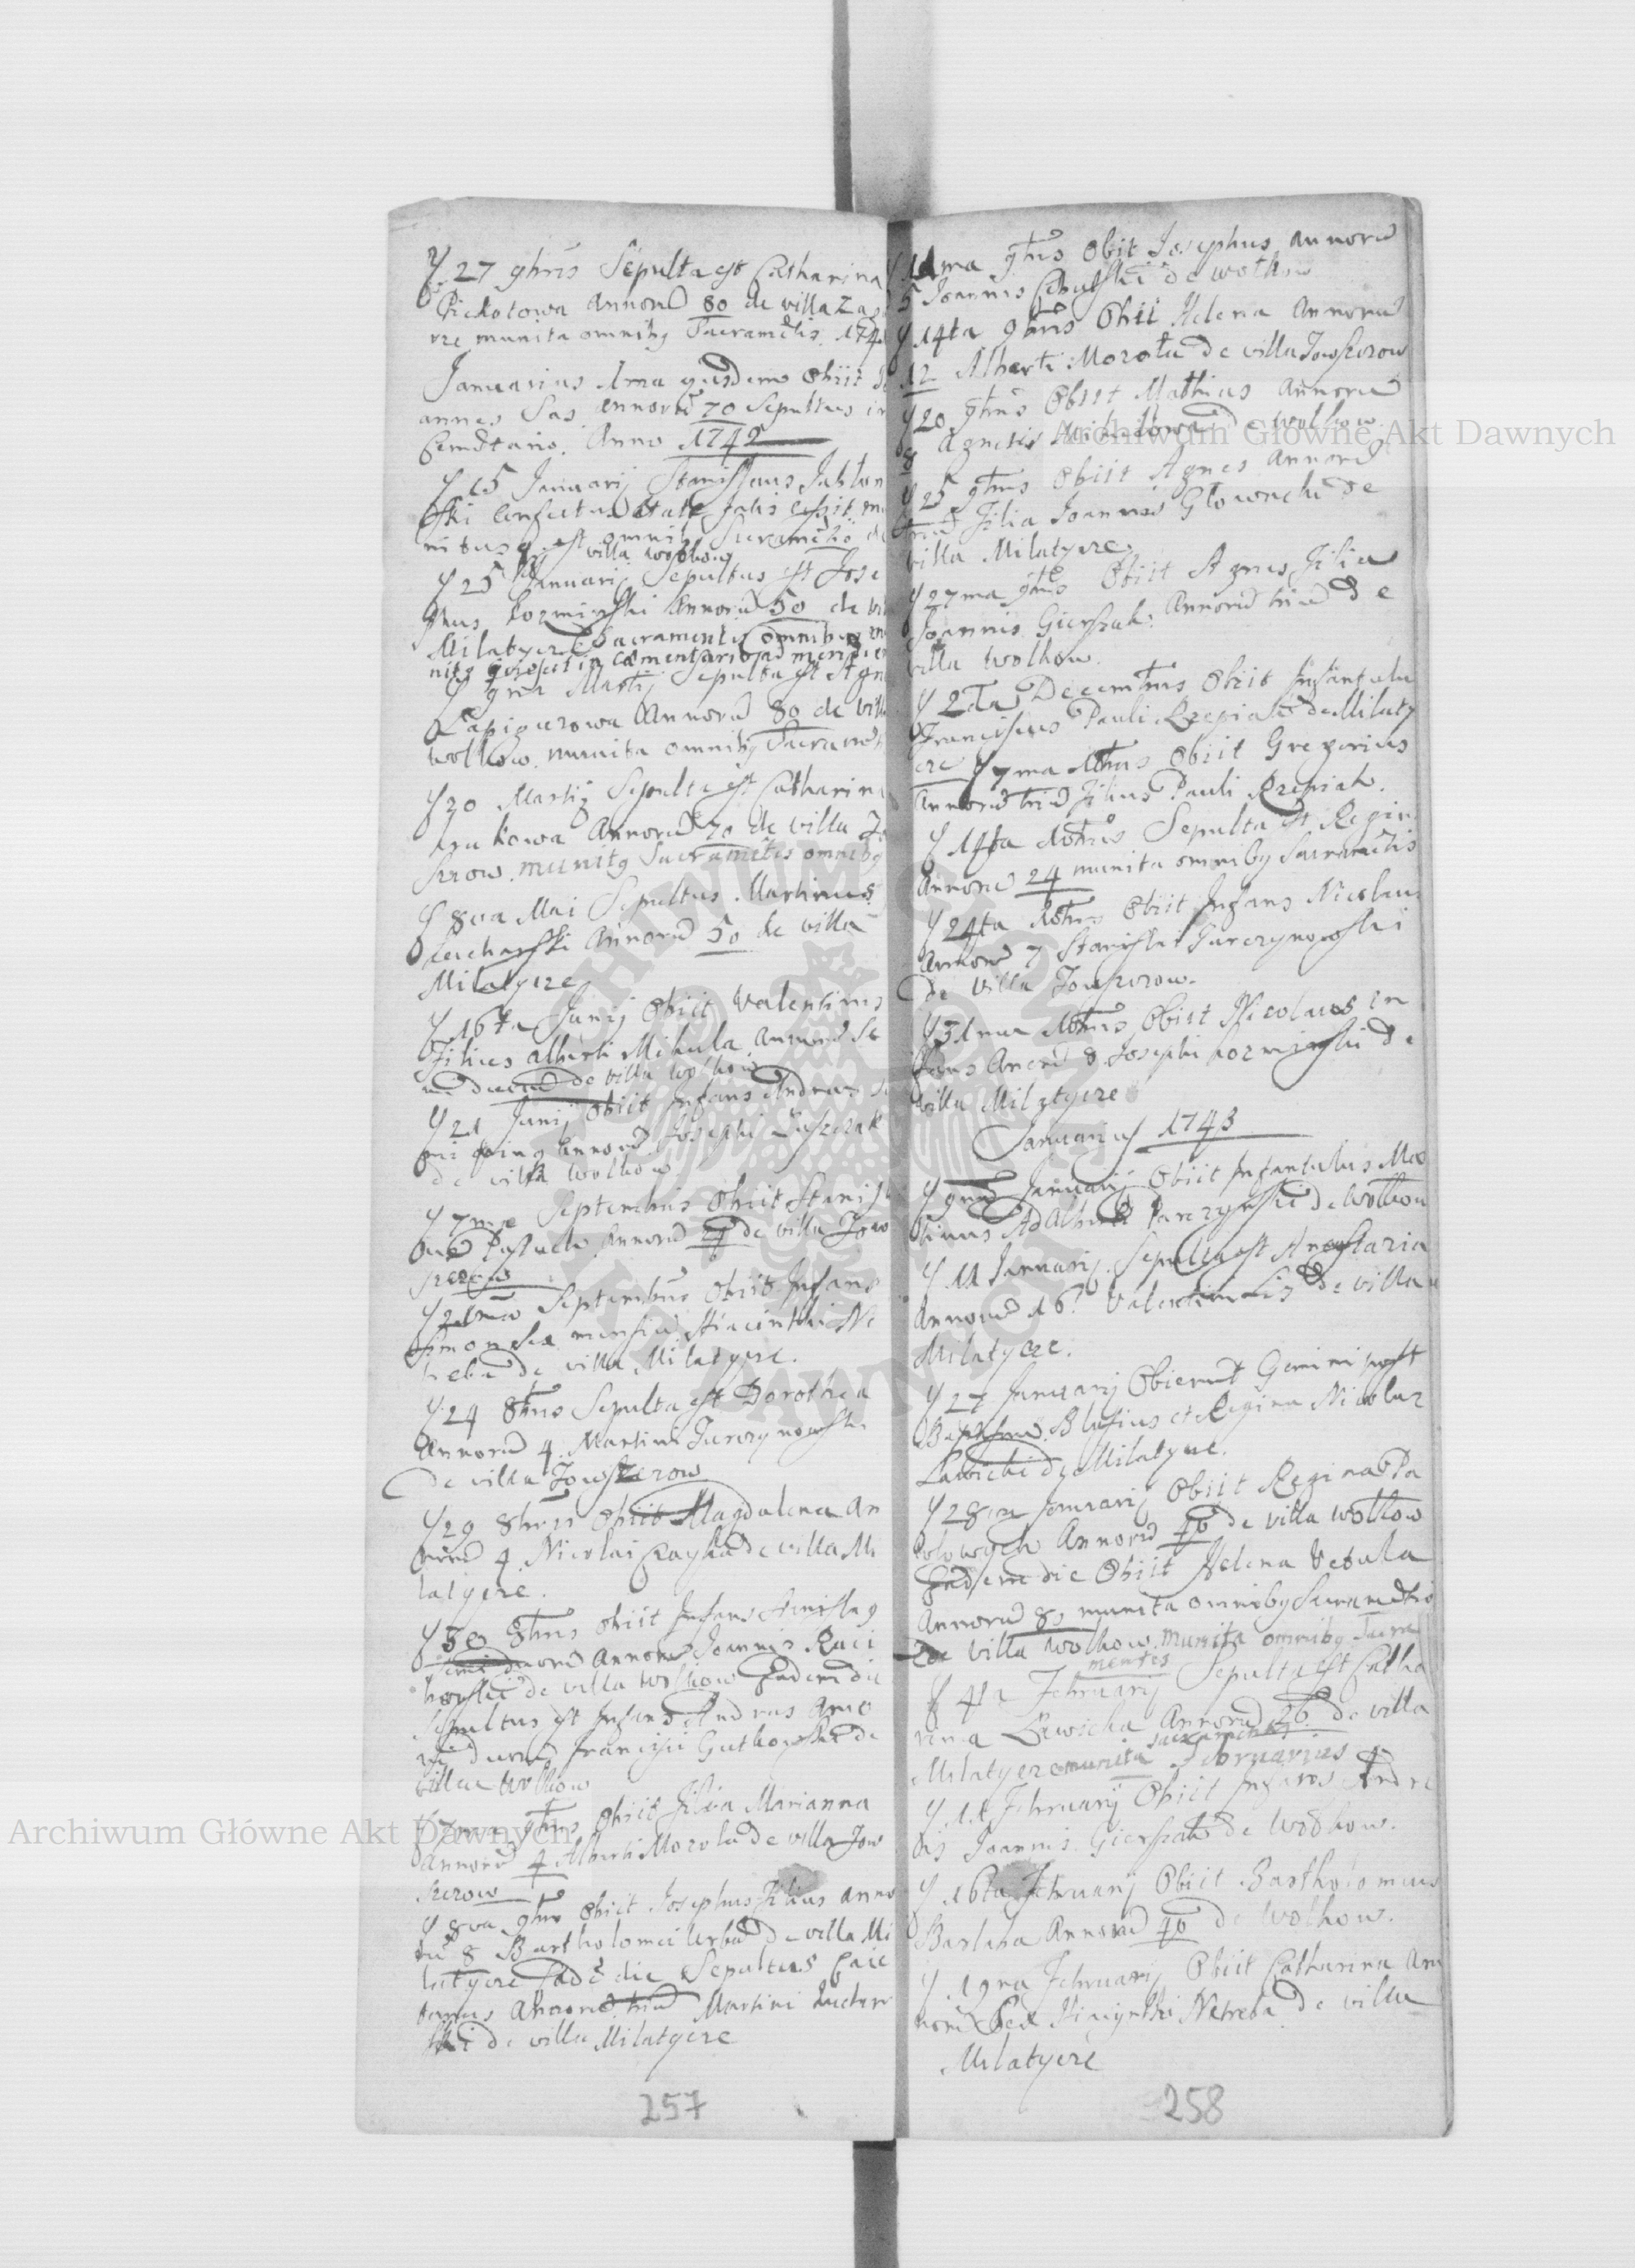 27 9bris Sepulta est Catharina
Piekotowa Annorũ 80 de villa Zas
rze munita omnibq Sacramẽtis. 174
Januarius 1ma ejusdem Obiit Jo
annes Sas annorũ 70 Sepultus in
Cemẽtario. Anno 1742
15 Januarij Stanislaus Jablon
ski Confectus etate
nitus est omnibq Sacramẽtis de
villa Wolkow
25 Januarij Sepultus est Jose
phus Kozminski Annorũ 50 de vil
Milatycze Sacramentis omnibus mu
nitq in caementario ad meridiem
9na Martij Sepulta est Agn
Łapiguzowa Annorũ 80 de villa
Wolkow. munita omnibq Sacramẽt
20 Martij Sepulta est Catharina
Annorũ 70 de villa To
szrow. munitq Sacramẽtis omnibq
8va Mai Sepultus Martinus
Annorũ 50 de villa
Milatycze
16ta Junij Obiit Valentinus
Filius Alberti Mikula Annorũ Se
mi duorũ de villa Wolkow
21 Junij Obiit Infans Andreas Se
mi Annorũ Josephi Łuszczak
de villa Wolkow.
7ma Septembris Obiit Stanisl
aus Pastuch Annorũ 4 de villa Tow
szczow
21ma Septembris Obiit Infans
Simon Sex mensiũ Hiacinthi Ne
treba de villa Milatycze.
24 8bris Sepulta est Dorothea
Annorũ 4. Martini Jurczynowski
de villa Towszczow
29 8bris Obiit Magdalena An
norũ 4. Nicolai Czayka de villa Mi
latycze.
30 8bris obiit Infans Stanislaq
Semi duorũ Annorũ Joannis Raci
borski de villa Wolkow Eadem die
Sepultus est Infans Andreas Anno
rũ duorũ Francisci Gutkowski de
villa Wolkow
7ma 9bris Obiit Filia Marianna
Annorũ 4 Alberti Mozola de villa Tow
szczow
8va 9bris Obiit Josephus Filius Anno
rũ 8 Bartholomei Urban de villa Mi
latycze Eadẽ die Sepultus Caie
tanus Annorũ triũ Martini
ski de villa Milatycze
257
11ma 9bris Obiit Josephus Annorũ
5 Joannis Cebulski de Wolkow
14ta 9bris Obiit Helena Annorũ
12 Alberti Mozoła de villa Towszczow
20 9bris Obiit Mathias Annorũ
8 Agnetis de Wolkow.
25 9bris Obiit Agnes Annorũ
triũ Filia Joannis Głowacki de
villa Milatycze
27ma 9bris Obiit Agnes Filia
Joannis Gierszak Annorũ triũ de
villa Wolkow.
2da Decembris Obiit Infantulu
Franciscus Pauli Rzepiak de Milaty
cze 7ma Xbris Obiit Gregorius
Annorũ triũ Filius Pauli Rzepiak.
14ta Xbris Sepulta est Regin
Annorũ 24 munita omnibq Sacramẽtis
24ta Xbris Obiit Infans Nicolaus
Annorũ 7 Stanislai Jurczynowski
de Villa Towszczow.
31ma Xbris Obiit Nicolaus In
fans Annorũ 8 Josephi Kozminski de
villa Milatycze
Januarius 1743
9na Januarij Obiit Infantulus Mar
tinus Adalberti Parczynski de Wolkow
11 Januarij Sepulta est Anastazia
Annorũ 16. Valentini Lis de villa
Milatycze.
27 Januarij Obierunt Gemini post
Baptismũ Blasius et Regina Nicolai
Ławicki de Milatycze.
28va Januarij Obiit Regina Pa
wlowych Annorũ 40 de villa Wolkow
Eadem die Obiit Helena Vetula
Annorũ 80 munita omnibq Sacramẽtis
de villa Wolkow. munita omnibq Sacra
mentes
4ta Februarij Sepulta est Catha
rina Ławicka Annorũ 26 de villa
Milatycze munita sacramentis Februarius
11 Februarij Obiit Infans Andre
as Joannis Gierszak de Wolkow.
16ta Februarij Obiit Bartholomeus
Barłaba Annorũ 40 de Wolkow.
19na Februarij Obiit Catharina An
norũ Sex Hiacynthi Netreba de villa
Milatycze
258
Archiwum Główne Akt Dawnych
Archiwum Główne Akt Dawnych